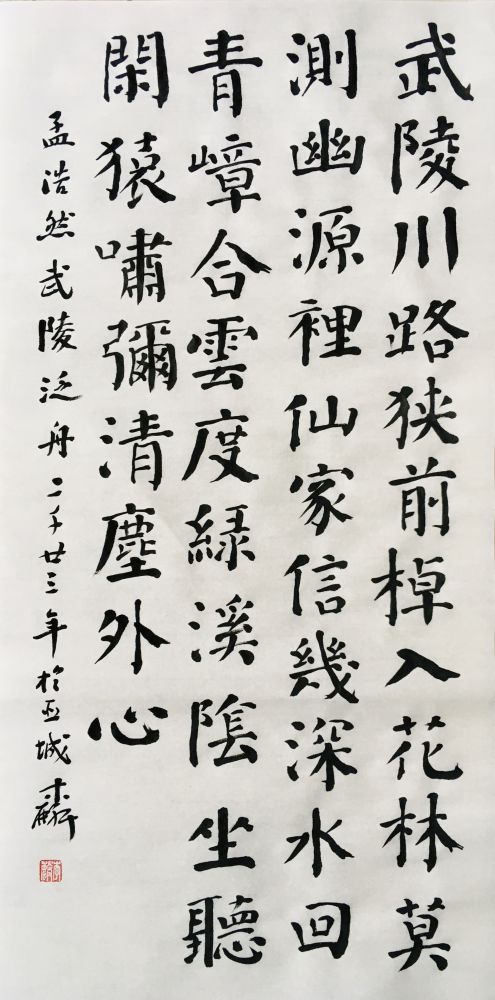 武陵川路狭前棹入花林莫
測幽源裡仙家信幾深水回
青嶂合雲度綠溪陰坐聽
閑猿嘯彌清塵外心
孟浩然武陵泛舟二千廿三年於亚城麟